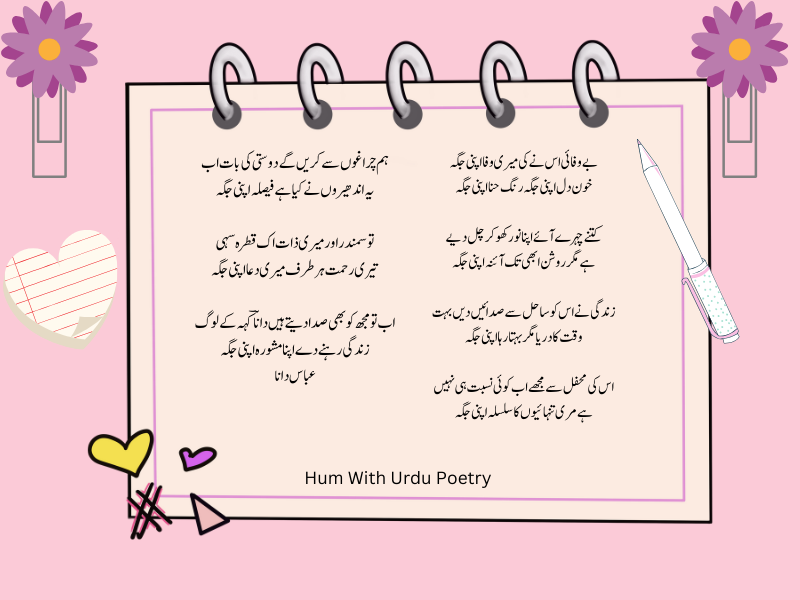 بے وفائی اس نے کی میری وفا اپنی جگہ
خون دل اپنی جگہ رنگ حنا اپنی جگہ
کتنے چہرے آئے اپنا نور کھو کر چل دیے
ہے مگر روشن ابھی تک آئنہ اپنی جگہ
زندگی نے اس کو ساحل سے صدائیں دیں بہت
وقت کا دریا مگر بہتا رہا اپنی جگہ
اس کی محفل سے مجھے اب کوئی نسبت ہی نہیں
ہے مری تنہائیوں کا سلسلہ اپنی جگہ
ہم چراغوں سے کریں گے دوستی کی بات اب
یہ اندھیروں نے کیا ہے فیصلہ اپنی جگہ
تو سمندر اور میری ذات اک قطرہ سہی
تیری رحمت ہر طرف میری دعا اپنی جگہ
اب تو مجھ کو بھی صدا دیتے ہیں داناؔ کہہ کے لوگ
زندگی رہنے دے اپنا مشورہ اپنی جگہ
عباس دانا
Hum With Urdu Poetry